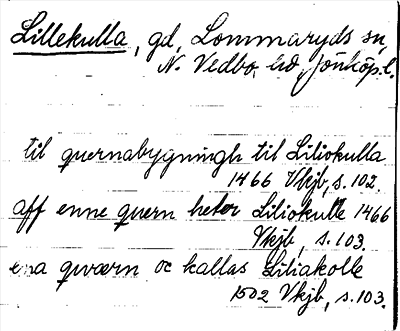 Lillekulla, gd, Lommaryds sn,
N. Vedbo hd, Jönköp.l.
til quernabygningh til Liliokulla
1466 Vkjb, s. 102.
aff enne quern heter Liliokulle 1466
Vkjb, s. 103.
ena qværn oc kallas Liliakolle
1502 Vkjb, s. 103.